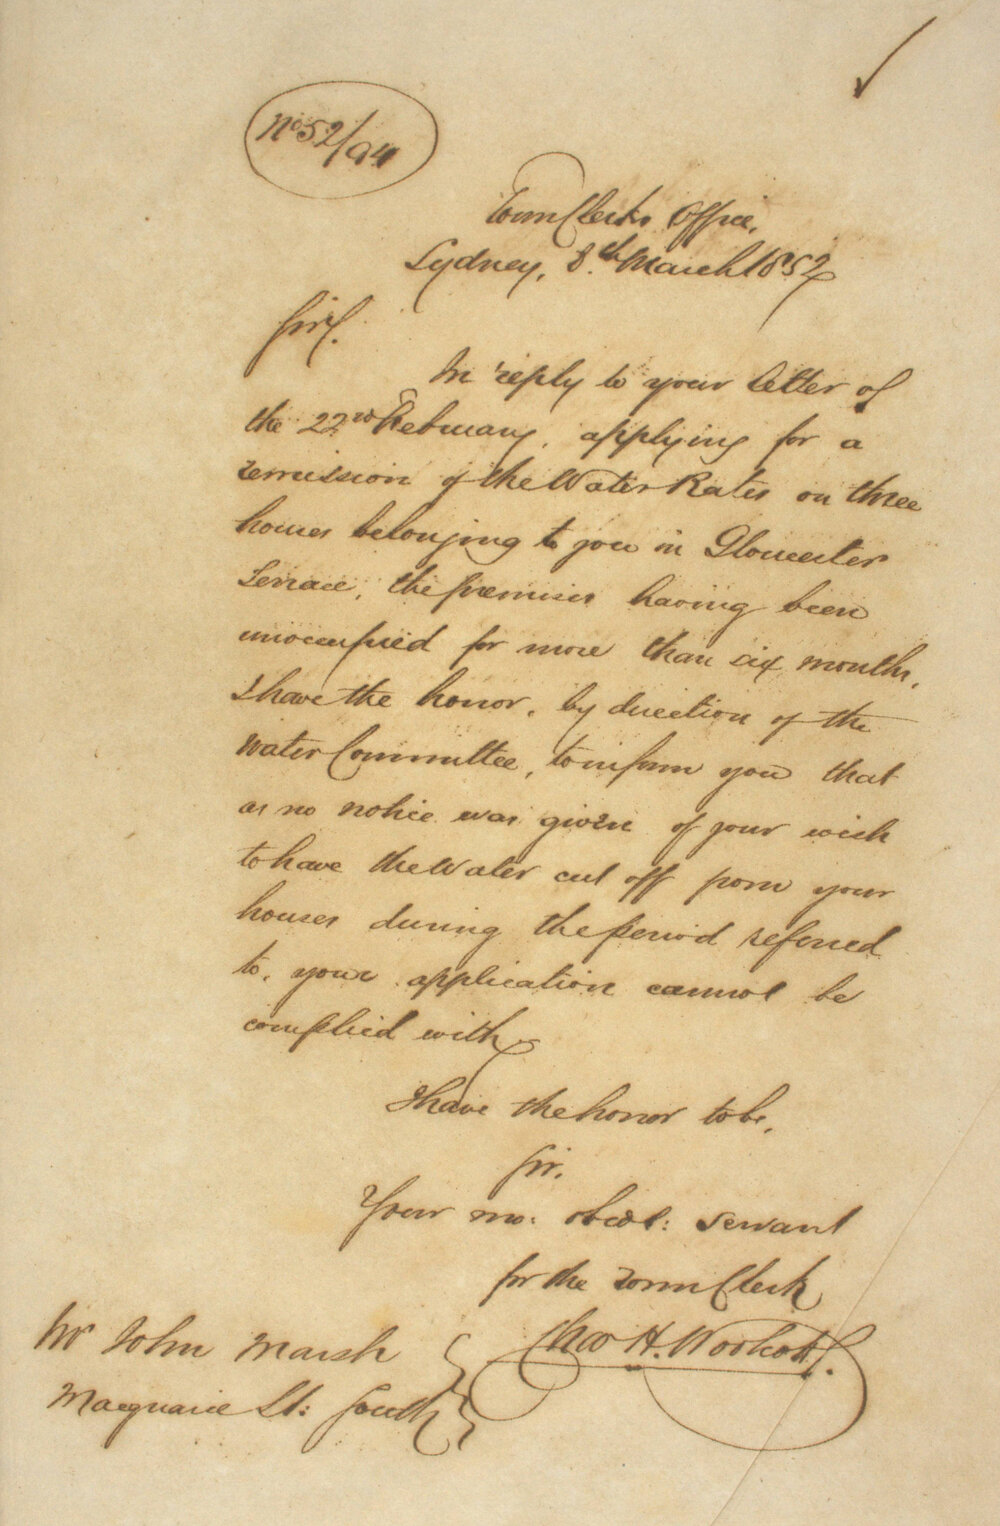 No 52/94
Town Clerks Office,
Sydney, 8th March 1852
Sir,
In reply to your letter of
the 22nd February, applying for a
remission of the Water Rates on three
houses belonging to you in Gloucester
Terrace, the premises having been
unoccupied for more than six months,
I have the honor, by direction of the
Water Committee, to inform you that
as no notice was given of your wish
to have the Water cut off from your
houses during the period referred
to, your application cannot be
complied with
I have the honor to be,
Sir,
Your mo: obedt: servant
for the Town Clerk
Chas H. Woolcott.
Mr John Marsh
Macquarie St: South